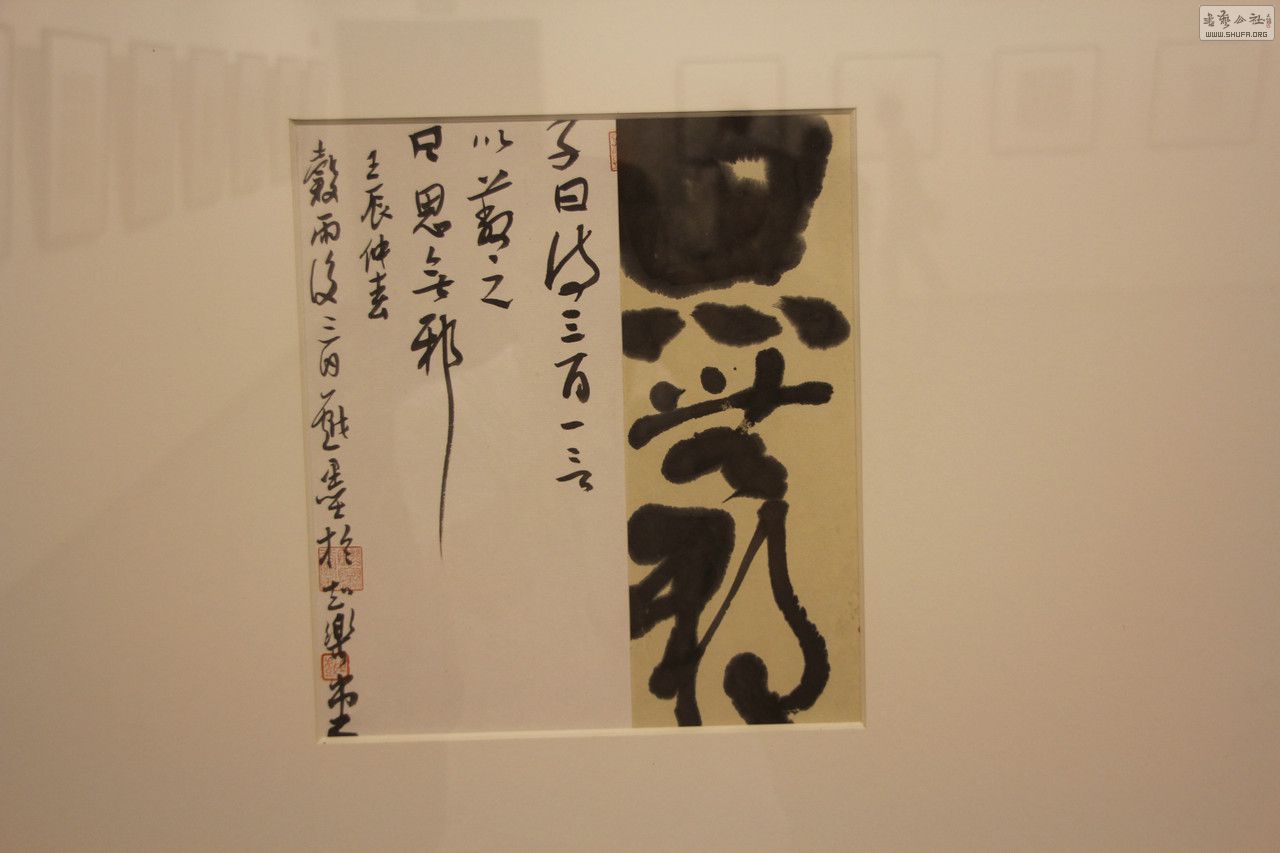 思無邪
子曰詩三百一言
以蔽之
曰思無邪
壬辰仲春
穀雨後三日戲墨於知樂堂
書藝公社
WWW.SHUFA.ORG